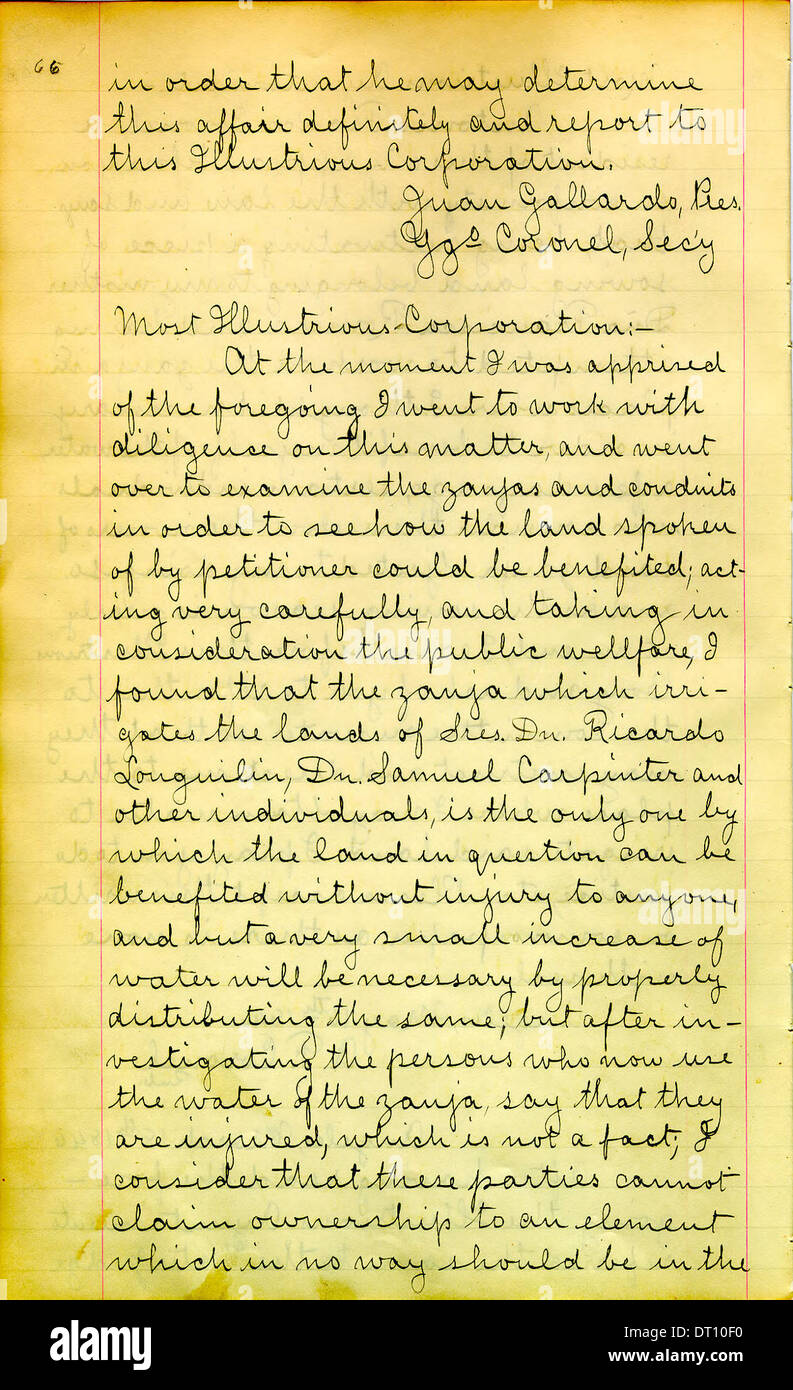 66
in order that he may determine
this affair definitely and report to
this Illustrious Corporation.
Juan Gallardo, Pres.
Ygo Coronel, Sec'y
Most Illustrious Corporation:-
At the moment I was apprised
of the foregoing I went to work with
diligence on this matter, and went
over to examine the zanjas and conduits
in order to see how the land spoken
of by petitioner could be benefited; act-
ing very carefully, and taking in
consideration the public wellfare, I
found that the zanja which irri-
gates the lands of Sres. Dn. Ricardo
Louguilin, Dn. Samuel Carpinter and
other individuals, is the only one by
which the land in question can be
benefited without injury to anyone,
and but a very small increase of
water will be necessary by properly
distributing the same; but after in-
vestigating the persons who now use
the water of the zanja, say that they
are injured, which is not a fact; I
consider that these parties cannot
claim ownership to an element
which in no way should be in the
alamy
Image ID: DT10F0
www.alamy.com